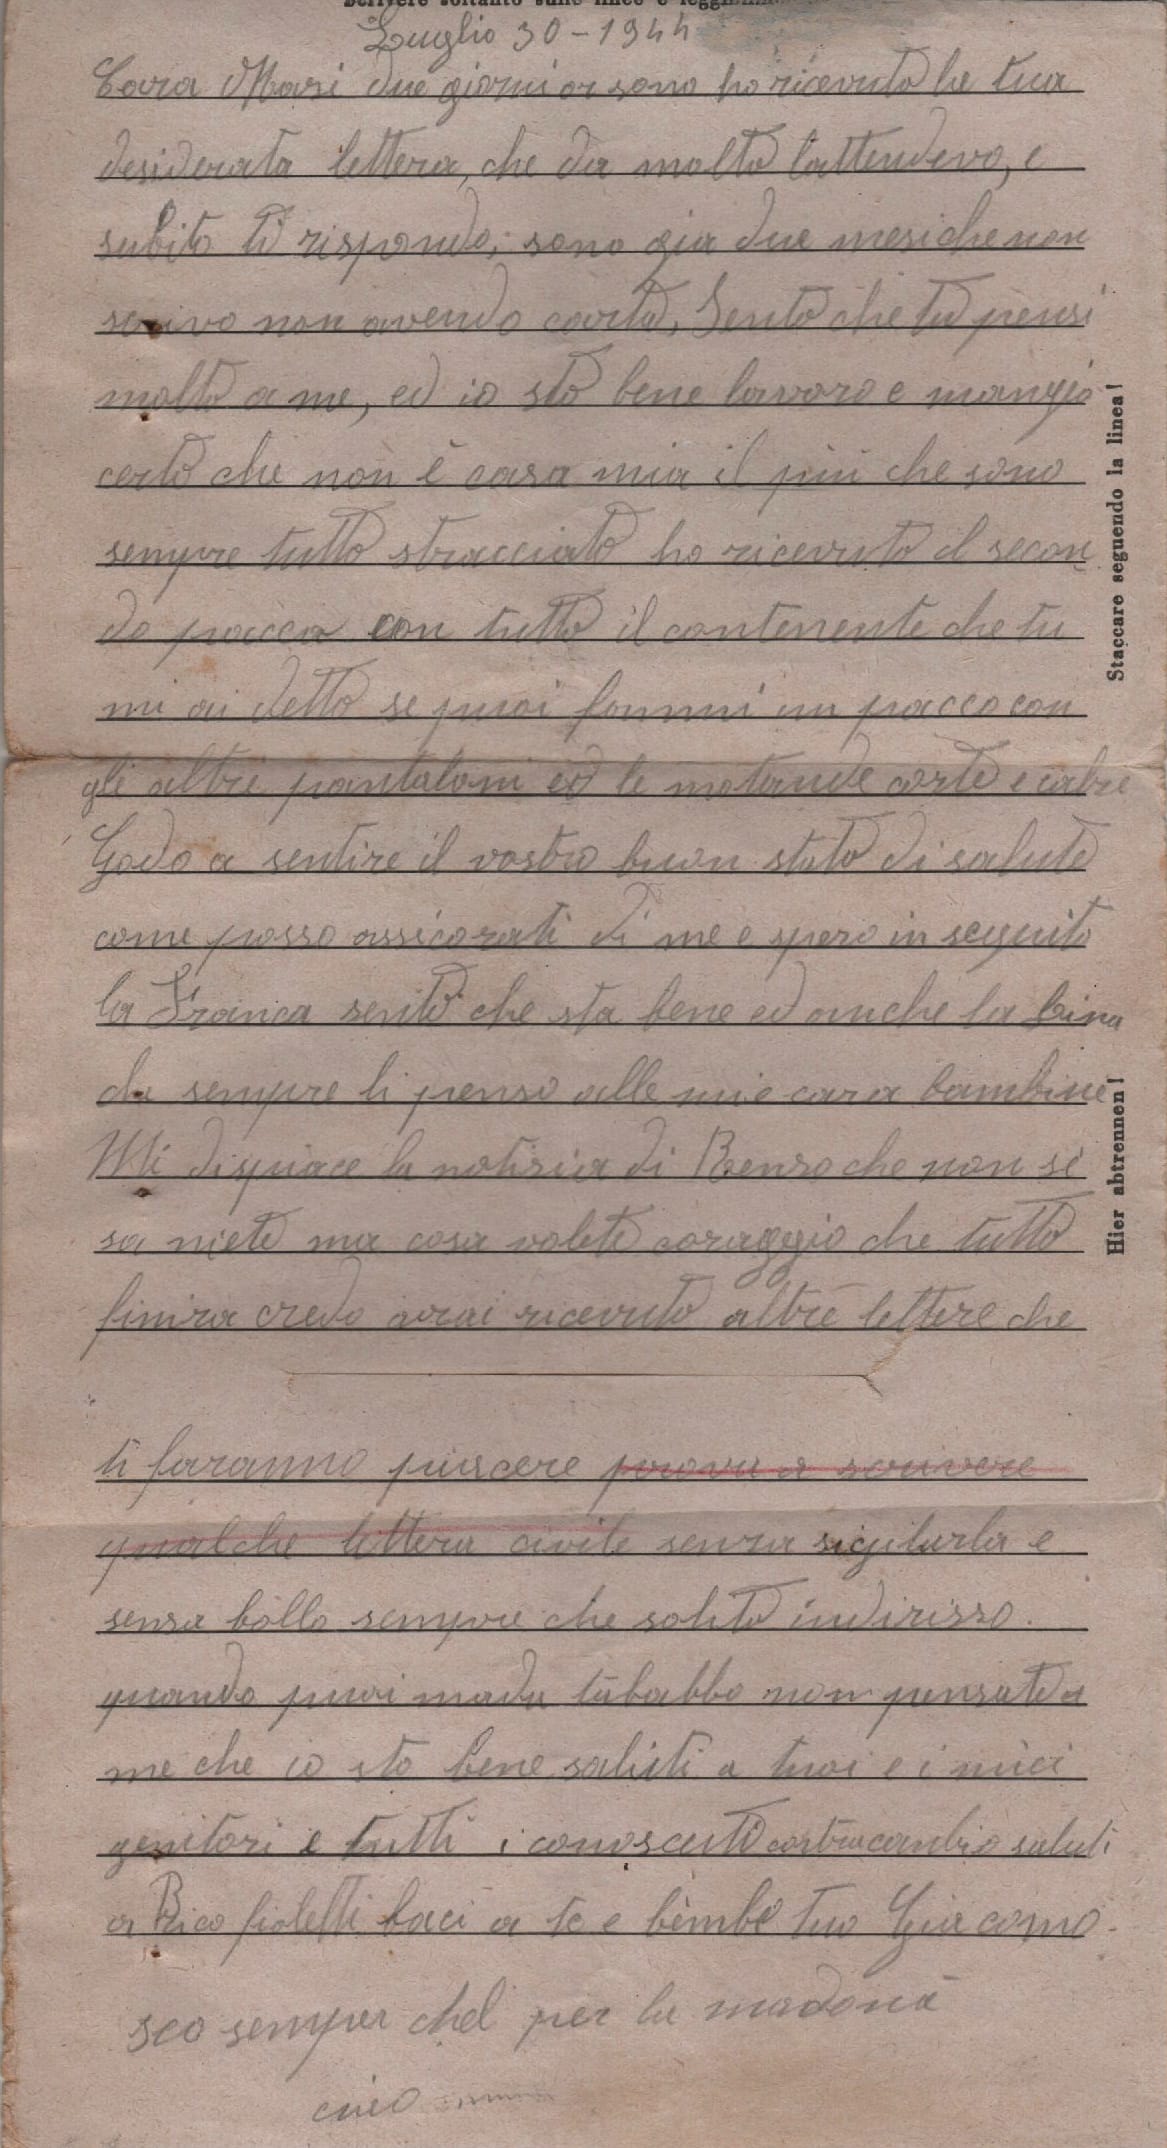 Scrivere soltanto sulle linee e leggibilmente
Luglio 30-1944
Cara Mari due giorni or sono ho ricevuto la tua
desiderata lettera, che da molto l'attendevo, e
subito ti rispondo, sono gia due mesi che non
scrivo non avendo carta, Sento che tu pensi
molto a me, ed io sto bene lavoro e mangio
certo che non è casa mia il più che sono
sempre tutto stracciato ho ricevuto il secon
do pacco con tutto il contenente che tu
mi ai detto se puoi fammi un pacco con
gli altri pantaloni ed le motande corte e calze
Godo a sentire il vostro buon stato di salute
come posso assicorati di me e spero in seguito
la Franca sento che sta bene ed anche la Lina
da sempre li penso alle mie cara bambine
Mi dispiace la notisia di Renso che non si
sa niete ma cosa volete coraggio che tutto
finira credo avrai ricevuto altre lettere che
ti faranno piacere prova a scrivere
qualche lettera civile senza sigilarla e
sensa bollo sempre che solito indirisso.
quando puoi mada tababbo non pensate a
me che io sto bene saluti a tuoi e i miei
genitori e tutti i conoscuti contracambio saluti
a Rico fioletti baci a te e bimbe tuo Giacomo.
sco semper chel per la madona
cieo
Staccare seguendo la linea!
Hier abtrennen!